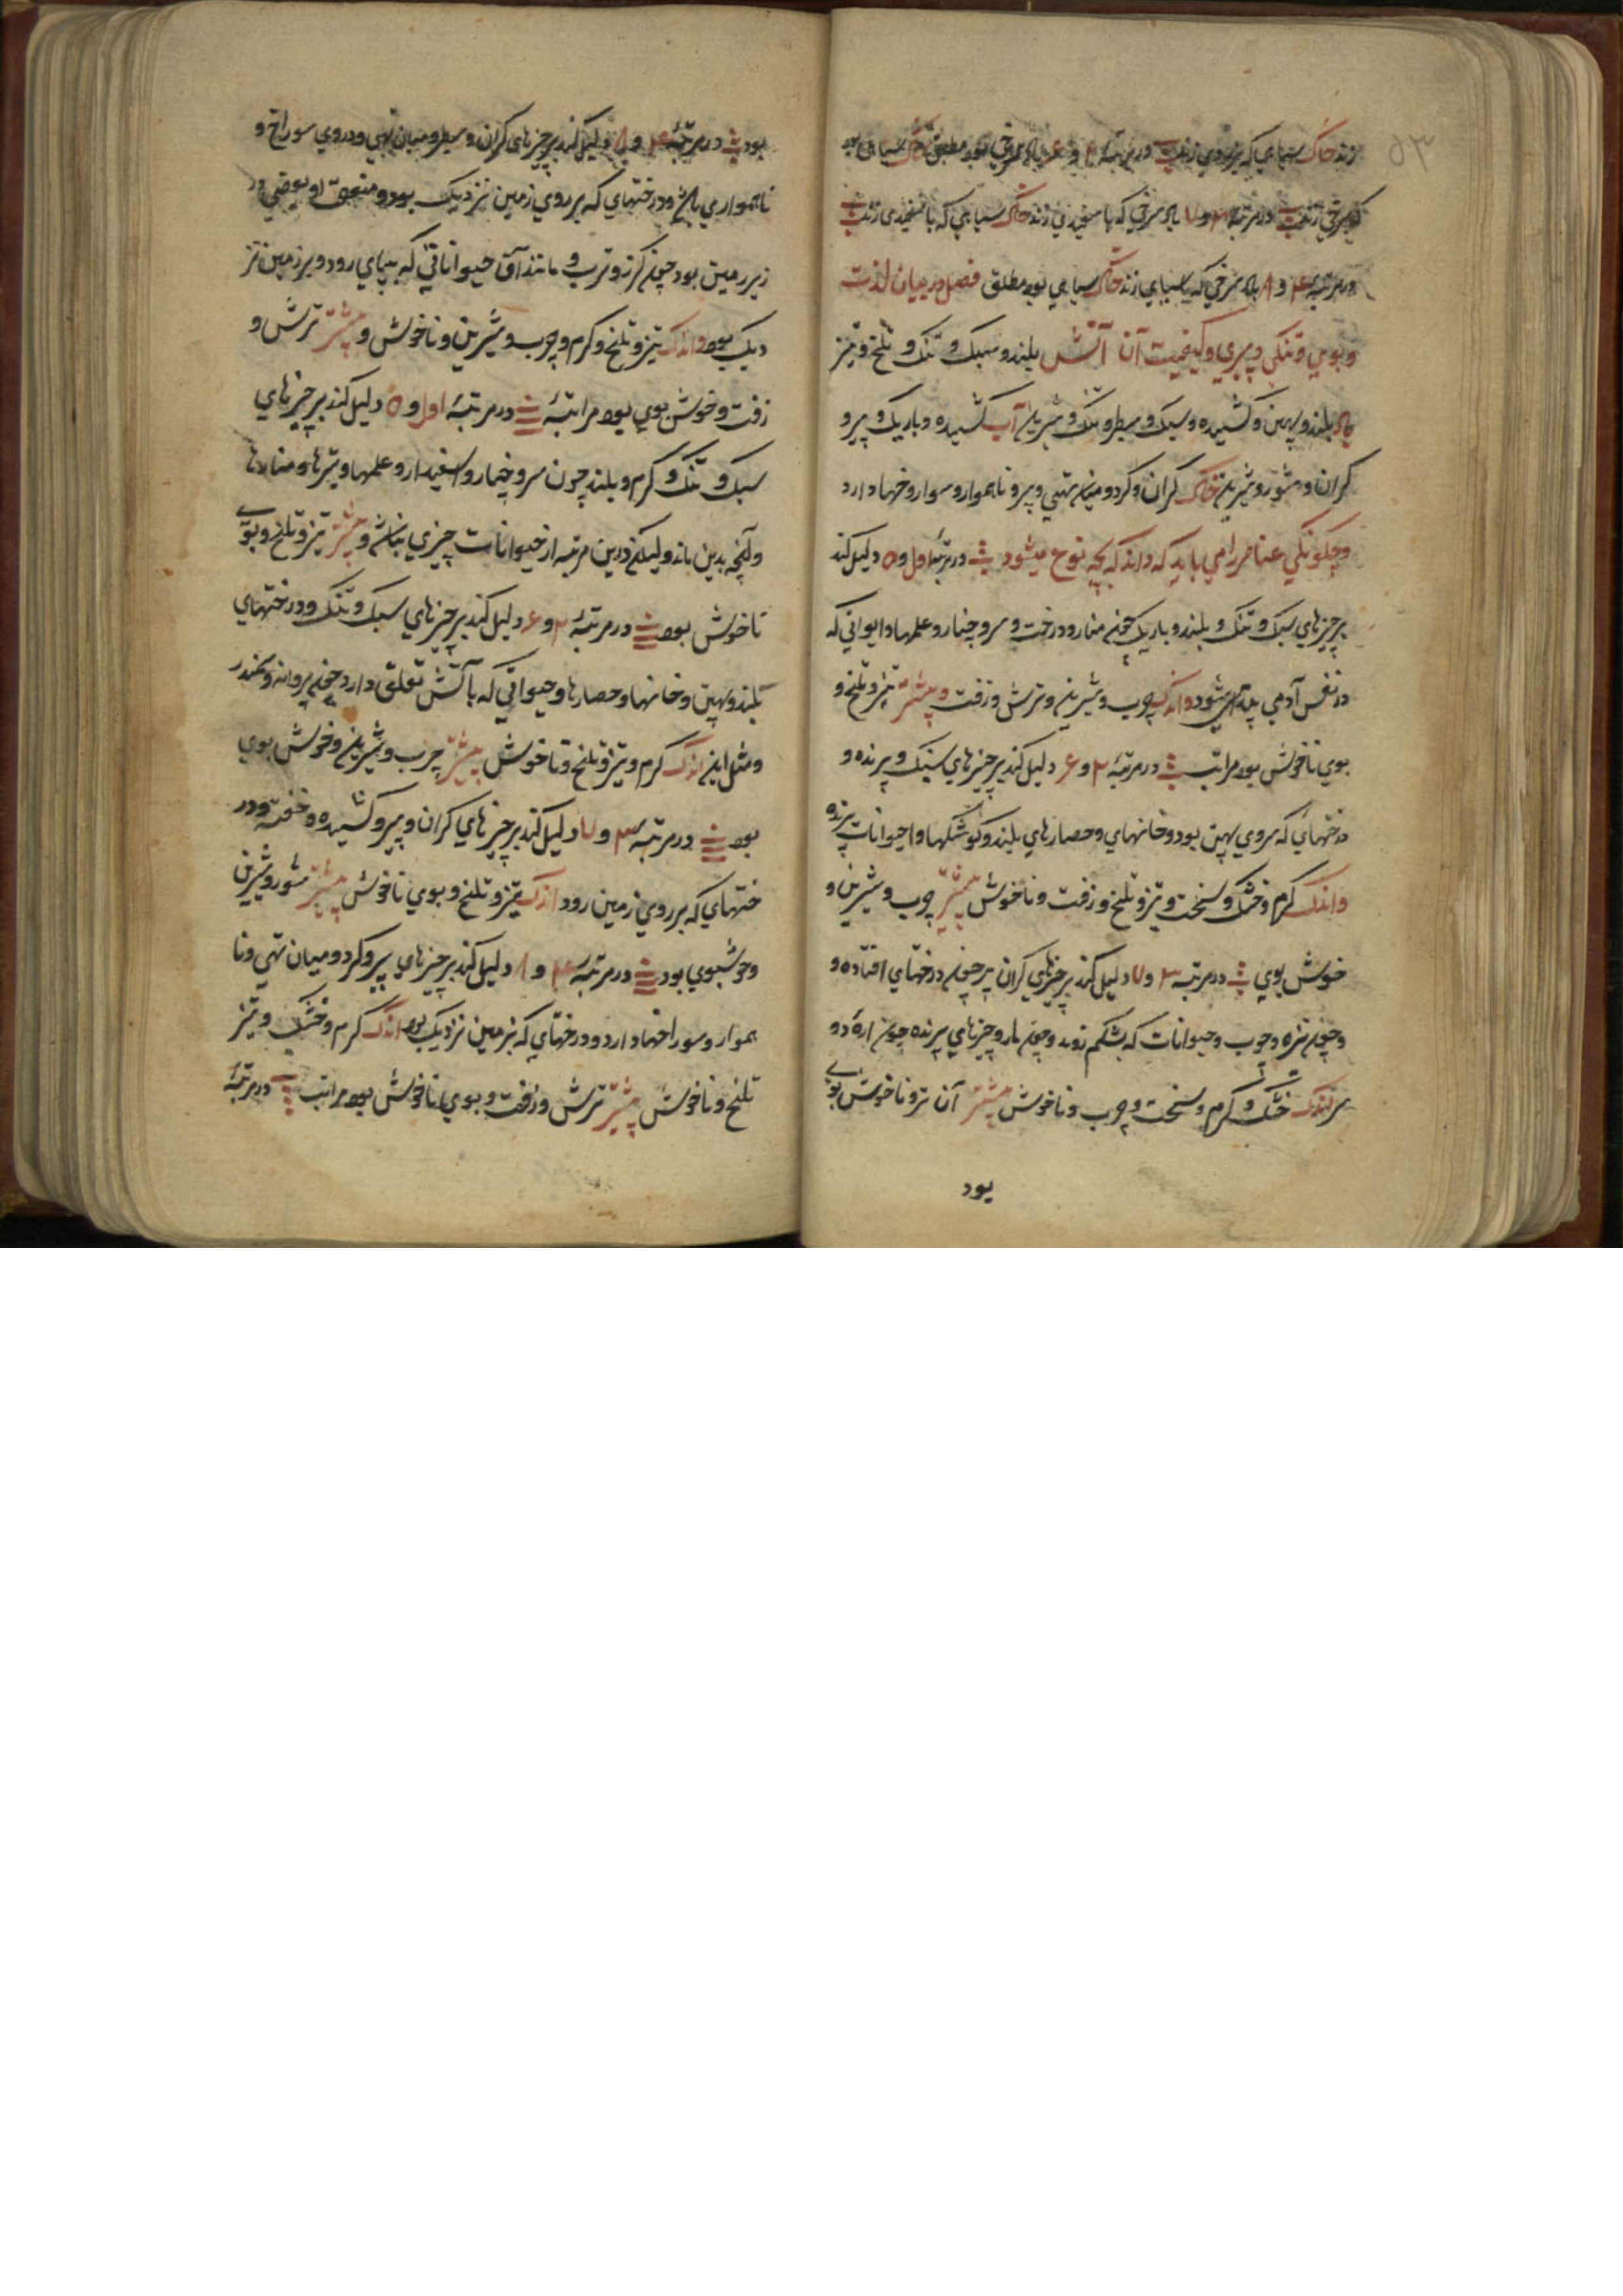 زند خاک سیاهی که بزردی زند در مرتبه ۲ و ۶ باد سرخی بود مطلق خاک سیاهی بود ۵۳
که بسرخی زند در مرتبه ۳ و ۷ باد سرخی که با سفیدی زند خاک سیاهی که با سفیدی زند
در مرتبه ۴ و ۸ باد سرخی که بسیاهی زند خاک سیاهی بود مطلق فصل در بیان لذت
و بوی و تنکی و پری و کیفیت آن آتش بلند و سبک و تنک و تلخ و تیز
باد بلند و پهن و کشیده و سبک و سطبر و تنک و شیرین آب کشیده و باریک و پر و
کران و شور و شیرین خاک کران و کرد و میان تهی و پر و ناهموار و سوارخها دارد
و چکونکی عناصر را می باید که داند که بچه نوع میشود در مرتبهٔ اول و ۵ دلیل کند
بر چیزهای سبک و تنک و بلند و باریک چون منار و درخت و سرو چنار و علمها و ایوانی که
در نفس آدمی شود و اندک چرب و شیرین و ترش و زفت و بیشتر تیز و تلخ و
بوی ناخوش بود مراتب در مرتبهٔ ۲ و ۶ دلیل کند بر چیزهای سبک و پرنده و
درختهای که سروی پهن بود و خانهای و حصارهای بلند و کوشکها و احیوانات پرنده
و اندک کرم و خشک و سخت و تیز و تلخ و زفت و ناخوش بیشتر چرب و شیرین و
خوش بوی در مرتبه ۳ و ۷ دلیل کند بر چیزهای کران پر چون درختهای افتاده و
و چون نیزه و چوب و حیوانات که بشکم روند و چون مار و چیزهای پرنده چون اره دو
سر اندک خشک و کرم و سخت و چرب و ناخوش بیشتر آن تر و ناخوش بوی
بود
بود در مرتبهٔ ۴ و ۸ دلیل کند بر چیزهای کران و سطبر و میان تهی و در وی سوراخ و
ناهمواری باشد و درختهای که بر روی زمین نزدیک بود و منفعت او بعضی در
زیر زمین بود چون کزر و ترب و مانند آن حیواناتی که بپای رود و بر زمین نز
دیک بود و اندک تیز و تلخ و کرم و چرب و شیرین و ناخوش و بیشتر ترش و
زفت و خوش بوی بود مراتبهٔ در مرتبهٔ اول و ۵ دلیل کند بر چیزهای
سبک و تنک و کرم و بلند چون سرو چنار و اسفیدار و علمها و تیرها و منارها
و آنچه بدین ماند ولیکن درین مرتبه از حیوانات چیزی نباشد و بیشتر تیز و تلخ و بوی
ناخوش بود در مرتبهٔ ۲ و ۶ دلیل کند بر چیزهای سبک و تنک و درختهای
بلند و پهن و خانها و حصارها و حیوانی که بآتش تعلق دارد چون پروانه و سمندر
و مثل این اندک کرم و تیز و تلخ و ناخوش بیشتر چرب و شیرین و خوش بوی
بود در مرتبه ۳ و ۷ دلیل کند بر چیزهای کران و پر و کشیده و خفته و در
ختهای که بر روی زمین رود اندک تیز و تلخ و بوی ناخوش بیشتر شور و شیرین
و خوشبوی بود در مرتبهٔ ۴ و ۸ دلیل کند بر چیزهای پر و کرد و میان تهی و نا
هموار و سوراخها دارد و درختهای که بزمین نزدیک بود اندک کرم و خشک و تیز
تلخ و ناخوش بیشتر ترش و زفت و بوی ناخوش بود مراتب در مرتبهٔ